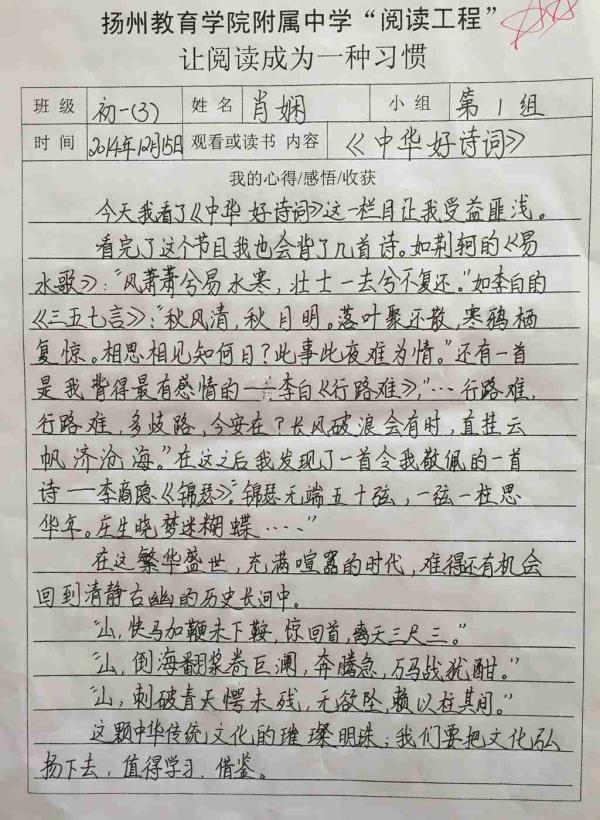 扬州教育学院附属中学“阅读工程”
让阅读成为一种习惯
班级 初一(3) 姓名 肖娴 小组 第1组
时间 2014年12月15日 观看或读书 内容 《中华好诗词》
我的心得/感悟/收获
今天我看了《中华好诗词》这一栏目让我受益匪浅。
看完了这个节目我也会背了几首诗。如荆轲的《易
水歌》:“风萧萧兮易水寒,壮士一去兮不复还。”如李白的
《三五七言》:“秋风清,秋月明。落叶聚还散,寒鸦栖
复惊。相思相见知何日?此事此夜难为情。”还有一首
是我背得最有感情的——李白《行路难》,“…行路难,
行路难,多歧路,今安在?长风破浪会有时,直挂云
帆济沧海。”在这之后我发现了一首令我敬佩的一首
诗——李商隐《锦瑟》:“锦瑟无端五十弦,一弦一柱思
华年。庄生晓梦迷蝴蝶……”
在这繁华盛世,充满喧嚣的时代,难得还有机会
回到清静古幽的历史长河中。
“山,快马加鞭未下鞍,惊回首,离天三尺三。”
“山,倒海翻浆卷巨澜,奔腾急,万马战犹酣。”
“山,刺破青天愕未残,无欲坠,赖以柱其间。”
这颗中华传统文化的璀璨明珠;我们要把文化弘
扬下去,值得学习、借鉴。